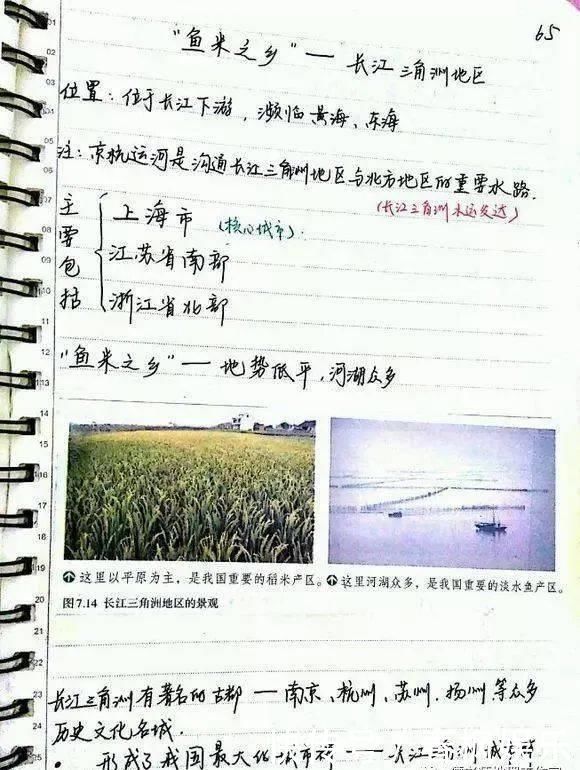 65
"鱼米之乡"——长江三角洲地区
位置:位于长江下游,濒临黄海、东海
注:京杭运河是沟通长江三角洲地区与北方地区的重要水路.
(长江三角洲水运发达)
主要包括
上海市 (核心城市)
江苏省南部
浙江省北部
"鱼米之乡"——地势低平,河湖众多
这里以平原为主,是我国重要的稻米产区。
这里河湖众多,是我国重要的淡水鱼产区。
图7.14 长江三角洲地区的景观
长江三角洲有著名的古都——南京、杭州、苏州.扬州等众多
历史文化名城.
形成了我国最大的城市群——长江三角洲城市